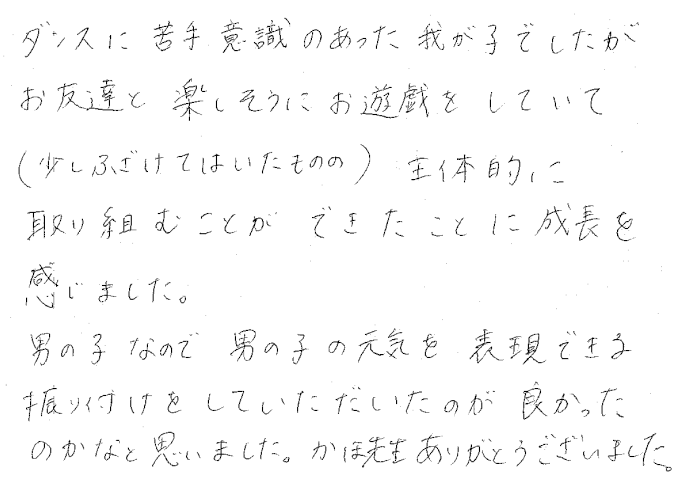 ダンスに苦手意識のあった我が子でしたが
お友達と楽しそうにお遊戯をしていて
(少しふざけてはいたものの)主体的に
取り組むことができたことに成長を
感じました。
男の子なので男の子の元気を表現できる
振り付けをしていただいたのが良かった
のかなと思いました。かほ先生ありがとうございました。